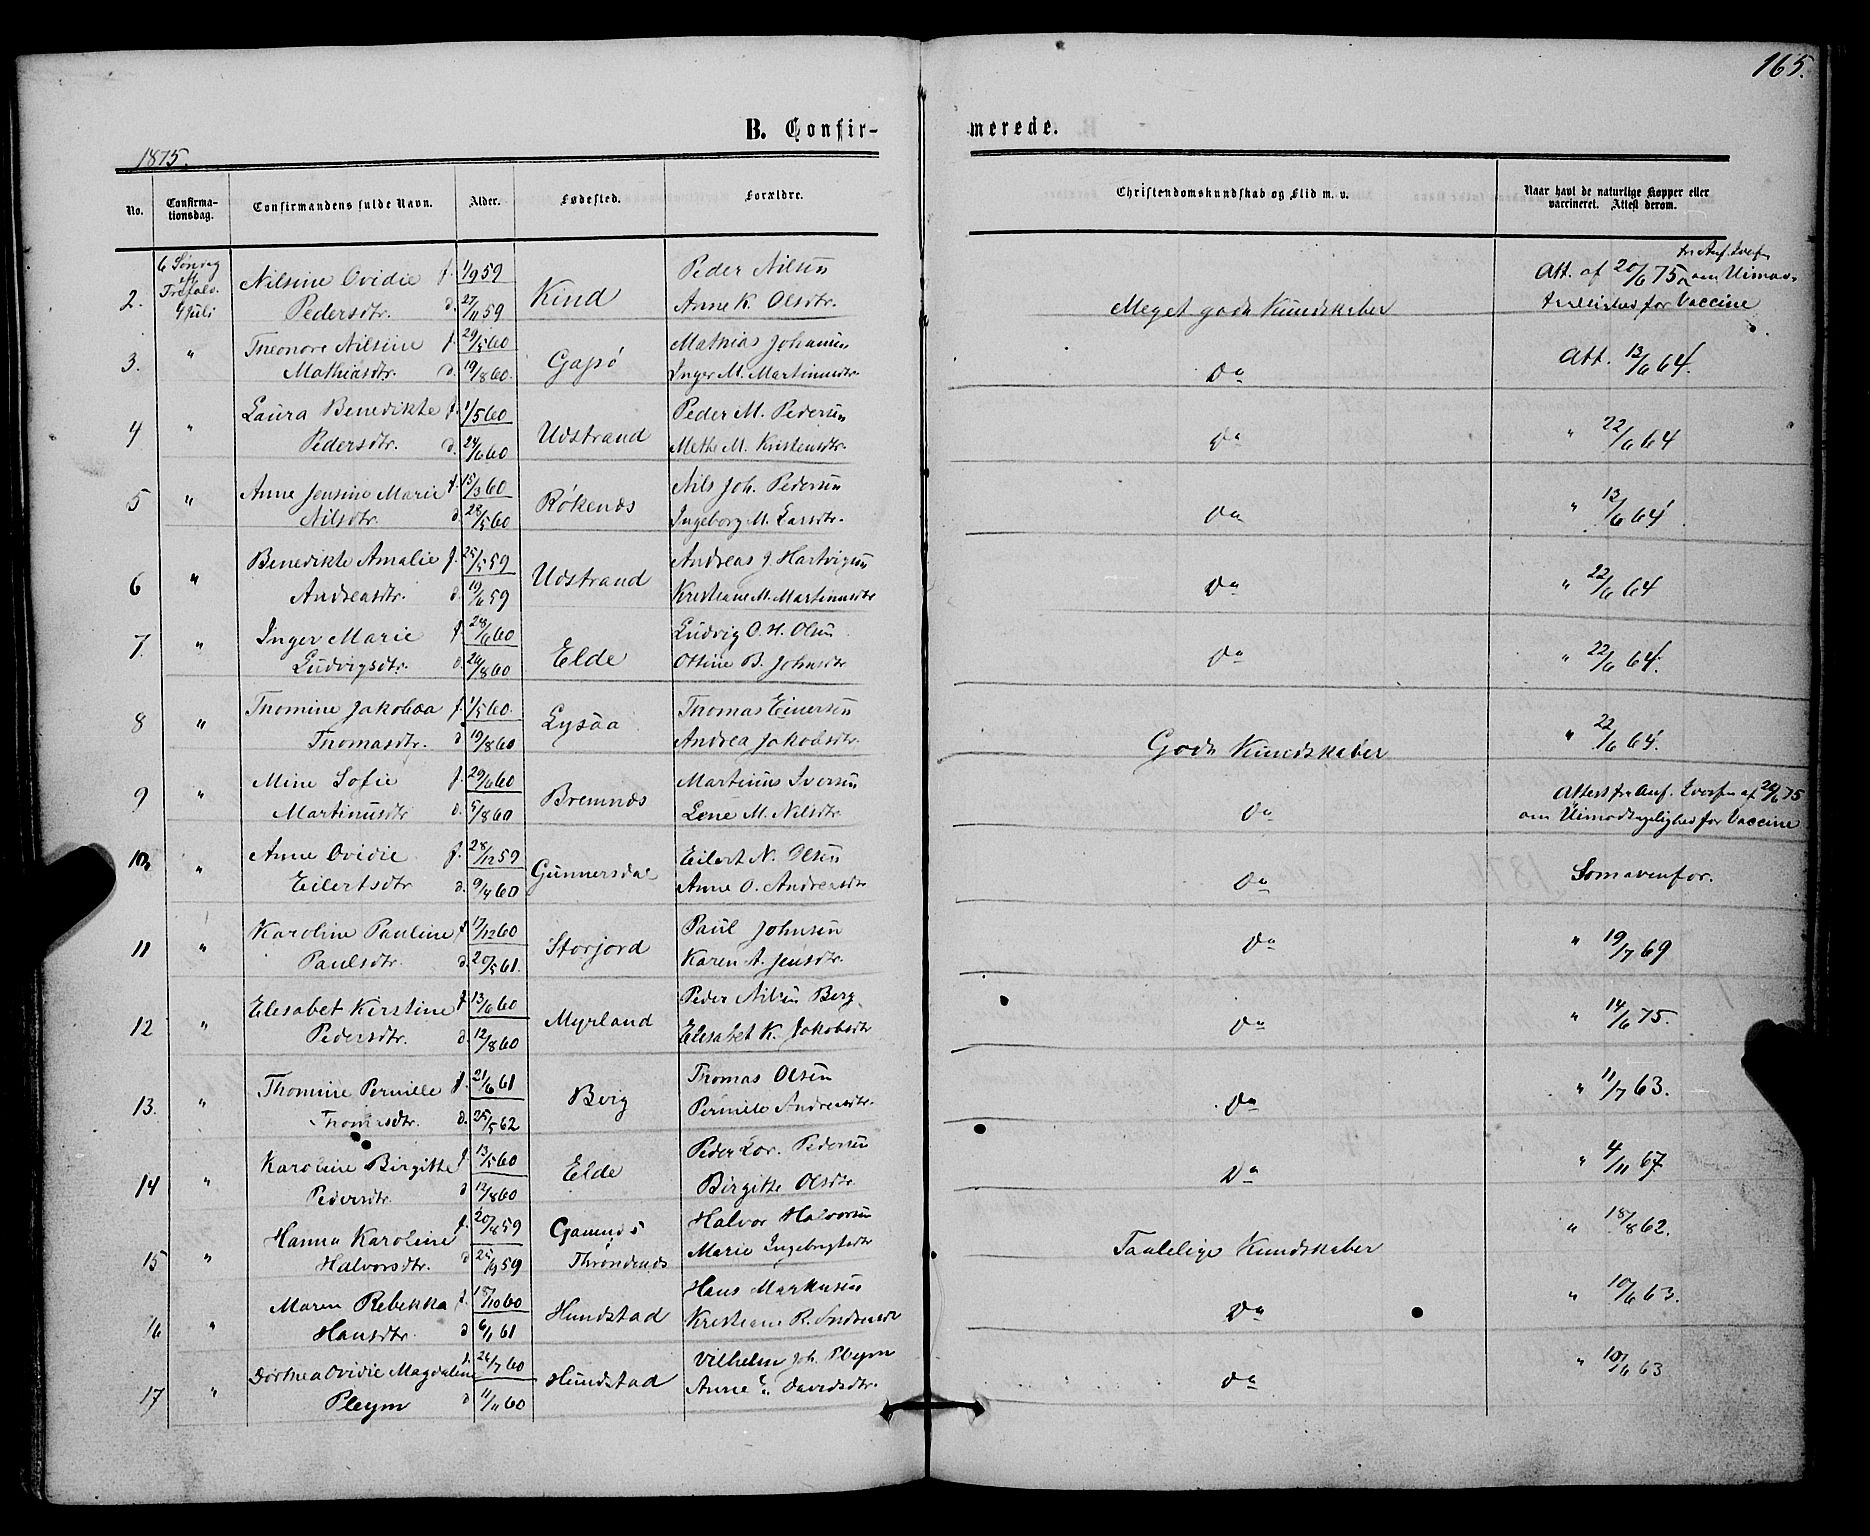 165.
B. Confir- merede.
1875.
No. Confirma-tionsdag. Confirmandens fulde Navn. Alder. Fødested. Forældre. Christendomskundskab og Flid m. v. Naar havt de naturlige Kopper eller vaccineret. Attest derom.
6 Søndag
Trefold.
4 Juli
2. Nilsine Ovidie f. 1/9 59 Kind Peder Nilsen Meget gode Kundskaber Att. af 20/6 75 om Uimod-
Pedersdtr. d. 27/11 59 Anne K. Olsdtr. for Vaccine
3. " Theonore Nilsine f. 29/5 60 Gapø Mathias Johansen Do Att. 13/6 64.
Mathiasdtr. d. 19/8 60. Inger M. Martinusdtr.
4 " Laura Benedikte f. 1/5 60 Udstrand Peder M. Pedersen Do " 22/6 64
Pedersdtr. d. 24/6 60 Methe M. Kristensdtr.
5 " Anne Jensine Marie f. 15/3 60 Røkenæs Nils Joh. Pedersen Do " 13/6 64
Nilsdtr. d. 28/5 60 Ingeborg M. Larsdtr.
6 " Benedikte Amalie f. 25/5 59 Udstrand Andreas J. Hartvigsen Do " 22/6 64
Andreasdtr. d. 19/6 59 Kristiane M. Martinusdtr
7. " Inger Marie f. 28/6 60 Elde Ludvig O. H. Olsen Do " 22/6 64.
Ludvigsdtr. d. 26/8 60 Ottine B. Johnsdtr
8 " Thomine Jakobæa f. 1/5 60. Lysaa Thomas Einersen Gode Kundskaber " 22/6 64.
Thomasdtr. d. 19/8 60 Andrea Jakobsdtr.
9 " Mine Sofie f. 29/6 60 Bremnæs Martinus Iversen Do Attest fr Auf. Iversen af 20/6 75
Martinusdtr d. 5/8 60 Lene M. Nilsdtr. om Uimodtagelighed for Vaccine
10 " Anne Ovidie f. 28/12 59 Gunnersdal Eilert N. Olsen Do Som ovenfor.
Eilertsdtr d. 9/4 60 Anne O. Andreasdtr
11 " Karoline Pauline f 17/12 60 Storjord Paul Johnsen Do " 19/7 69
Paulsdtr. d. 20/5 61. Karen A. Jensdtr.
12 " Elesabet Kirstine f 13/6 60 Myrland Peder Nilsen Berg Do " 14/6 75.
Pedersdtr. d. 12/8 60 Elesabet K. Jakobsdtr
13. " Thomine Pernille f. 21/6 61 Bvig Thomas Olsen Do " 11/7 63.
Thomasdtr. d. 25/5 62 Pernille Andreasdtr.
14 " Karoline Birgitte f. 13/5 60 Elde Peder Lor. Pedersen Do " 4/11 67
Pedersdtr. d 12/8 60 Birgitte Olsdtr
15 " Hanna Karoline f. 20/8 59 Gausnæs Halvor Halvorsen Taalelige Kundskaber " 18/8 62.
Halvorsdtr. d 25/9 59 Throndenæs Marie Ingebrigtsdtr
16 " Maren Rebekka f. 18/10 60 Hundstad Hans Markusen Do " 10/6 63.
Hansdtr. d 6/1 61 Kristiane R.
17 " Dorthea Ovidie Magdalene f. 26/7 60 Hundstad Vilhelm Joh. Pleym Do " 10/6 63
Pleym d 11/11 60 Anne Davidsdtr.